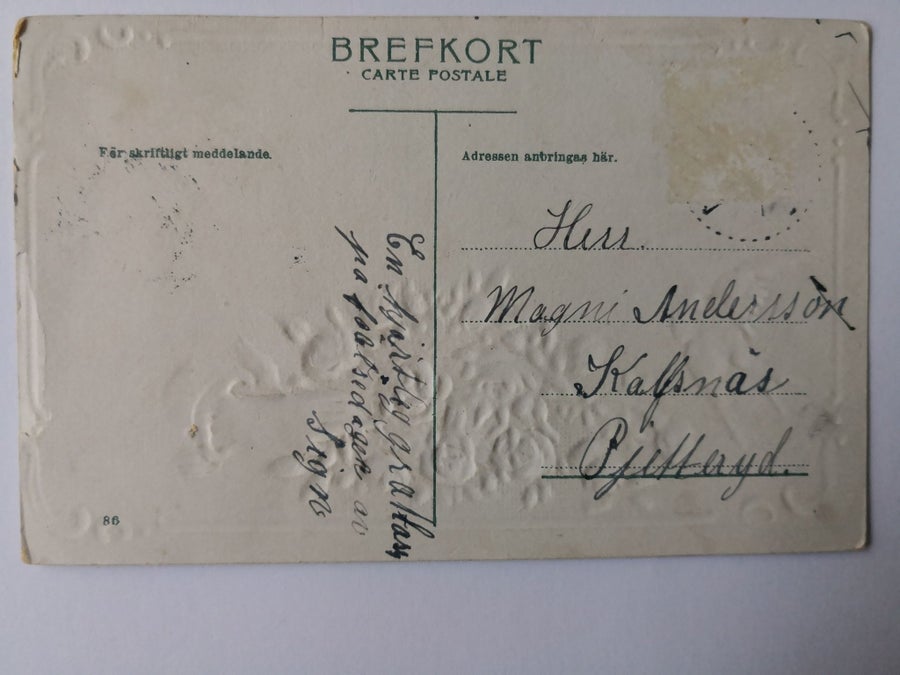 BREFKORT
CARTE POSTALE
För skriftligt meddelande.
Adressen anbringas här.
En hjärtlig grattas
på födelsedagen av
Signe
Herr.
Magni Andersson
Kalfsnäs
Pjetteryd.
86